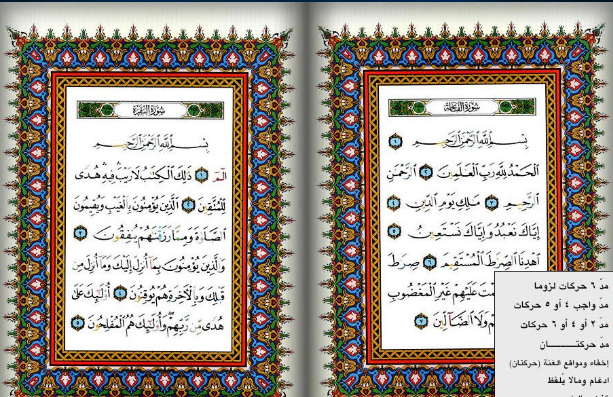 سُورَةُ الفَاتِحَةِ
بِسْمِ ٱللَّهِ ٱلرَّحْمَٰنِ ٱلرَّحِيمِ ١
ٱلْحَمْدُ لِلَّهِ رَبِّ ٱلْعَٰلَمِينَ ٢ ٱلرَّحْمَٰنِ
ٱلرَّحِيمِ ٣ مَٰلِكِ يَوْمِ ٱلدِّينِ ٤
إِيَّاكَ نَعْبُدُ وَإِيَّاكَ نَسْتَعِينُ ٥
ٱهْدِنَا ٱلصِّرَٰطَ ٱلْمُسْتَقِيمَ ٦ صِرَٰطَ
عَلَيْهِمْ غَيْرِ ٱلْمَغْضُوبِ
وَلَا ٱلضَّآلِّينَ ٧
مدّ ٦ حركات لزوما
مدّ واجب ٤ أو ٥ حركات
مدّ ٢ أو ٤ أو ٦ حركات
مدّ حركتــــــان
إخفاء ومواقع الغنة (حركتان)
ادغام ومالا يُلفظ
سُورَةُ البَقَرَةِ
بِسْمِ ٱللَّهِ ٱلرَّحْمَٰنِ ٱلرَّحِيمِ
الٓمٓ ١ ذَٰلِكَ ٱلْكِتَٰبُ لَا رَيْبَ ۛ فِيهِ ۛ هُدًى
لِّلْمُتَّقِينَ ٢ ٱلَّذِينَ يُؤْمِنُونَ بِٱلْغَيْبِ وَيُقِيمُونَ
ٱلصَّلَوٰةَ وَمِمَّا رَزَقْنَٰهُمْ يُنفِقُونَ ٣
وَٱلَّذِينَ يُؤْمِنُونَ بِمَآ أُنزِلَ إِلَيْكَ وَمَآ أُنزِلَ مِن
قَبْلِكَ وَبِٱلْءَاخِرَةِ هُمْ يُوقِنُونَ ٤ أُو۟لَٰٓئِكَ عَلَىٰ
هُدًى مِّن رَّبِّهِمْ وَأُو۟لَٰٓئِكَ هُمُ ٱلْمُفْلِحُونَ ٥